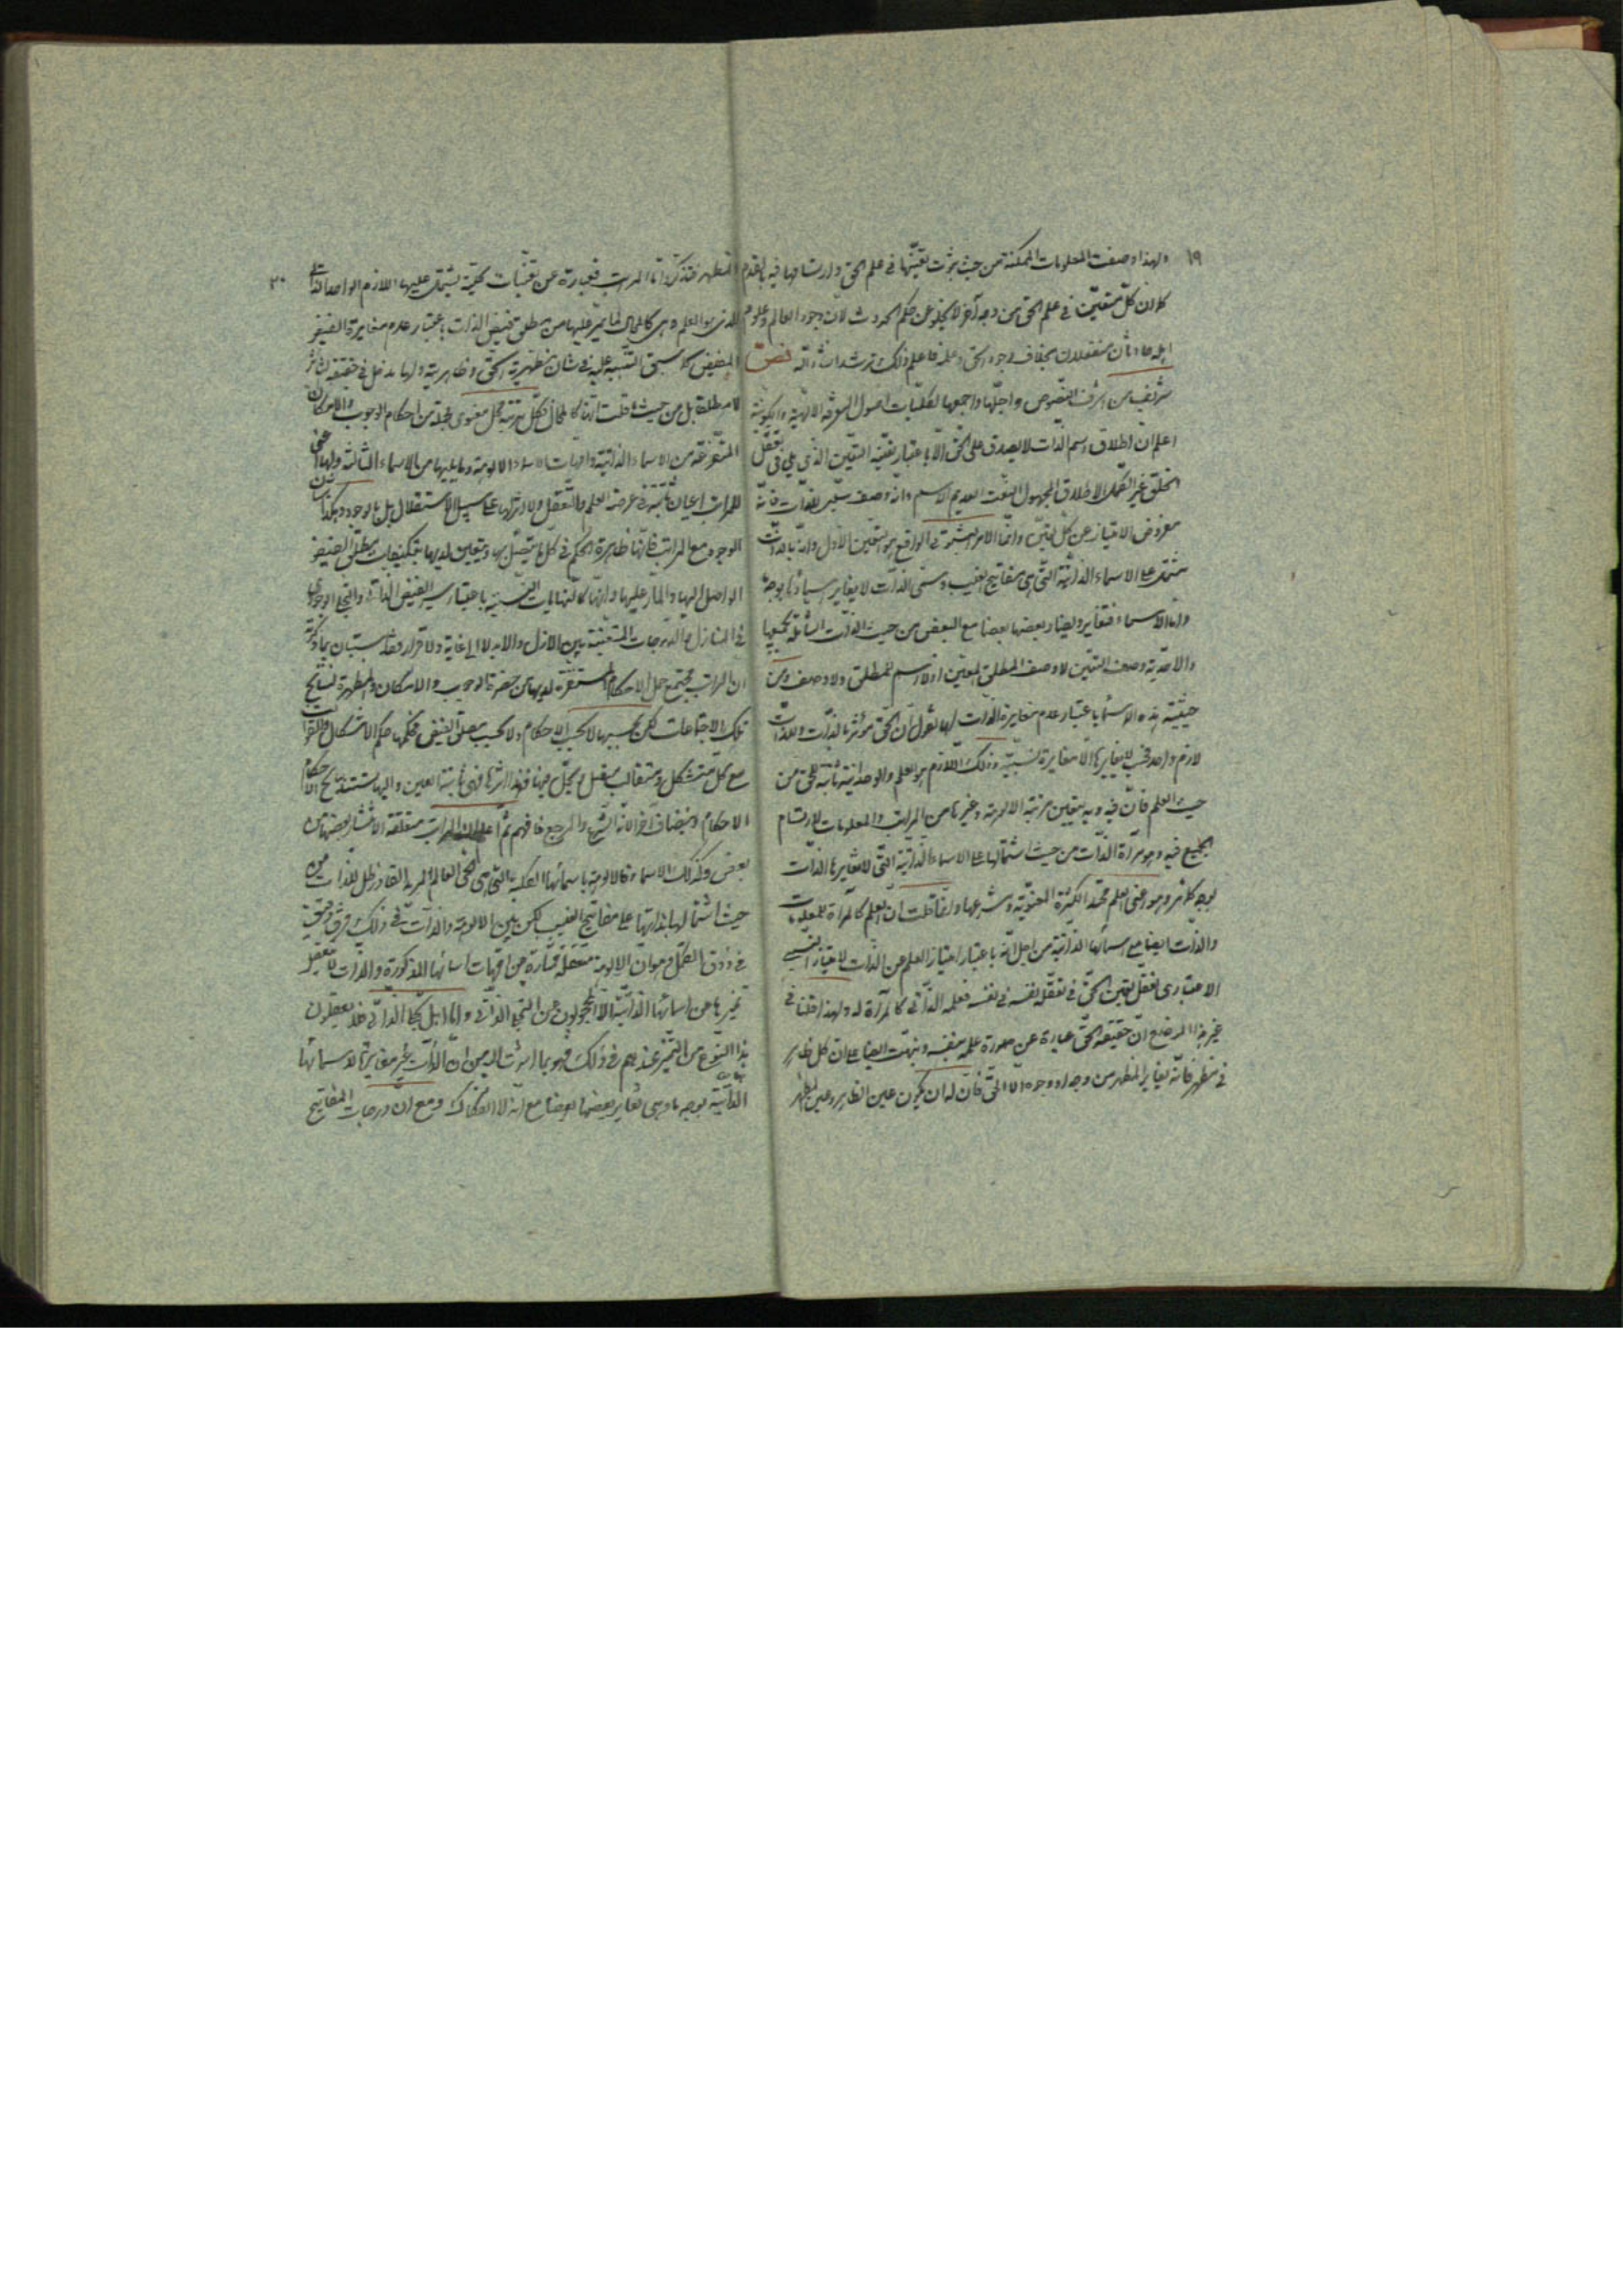 ١٩
ولهذا وصفت المعلومات الممكنة من حيث ثبوت تعيّنها في علم الحق وارتسامها فيه بالقدم
كلا ان كلّ متعيّن في علم الحق من وجه آخر لا يخلو عن حكم الحدوث لان وجود العالم وعلوم
اهله حادثان منفعلان بخلاف وجود الحق وعلمه فاعلم ذلك ترشد ان شاء الله نص
شريف من اشرف النصوص واجلّها واجمعها لكليات اصول المعرفة الالهية والكونية
اعلم ان اطلاق اسم الذات لا يصدق على الحق الا باعتبار تعيّنه التعيّن الذي يلي في تعقّل
الخلق غير الكمّل الاطلاق المجهول النعت العديم الاسم وانه وصف سلبي للذات فانه
مفروض الامتياز عن كل تعيّن وانما الامر الثبوتي الواقع هو التعيّن الاول وانه بالذات
مشتمل على الاسماء الذاتية التي هي مفاتيح الغيب ومسمى الذات لا يغاير اسماءها بوجه
واما الاسماء فتغاير وتضاد بعضها بعضا مع البعض من حيث الذات الشاملة لجميعها
والاحدية وصف التعيّن لا وصف المطلق المعيّن اذ لا اسم للمطلق ولا وصف ومن
حيثية هذه الاسماء باعتبار عدم مغايرة الذات لها نقول ان الحق مؤثر بالذات وللذات
لازم واحد فحسب لا يغايرها الا مغايرة نسبية وذلك اللازم هو العلم والوحدانية ثابتة للحق من
حيث العلم فان فيه وبه يتعين مرتبة الالوهية وغيرها من المراتب والمعلومات لارتسام
الجميع فيه وهو مرآة الذات من حيث اشتمالها على الاسماء الذاتية التي لا تغايرها الذات
بوجه كما مر وهو اعني العلم محتد الكثرة المعنوية ومشرعها وانما قلت ان العلم كالمرآة للمعلومات
والذات ايضا مع اسمائها الذاتية من اجل انه باعتبار امتياز العلم عن الذات الامتياز النسبي
الاعتباري تعقل تعين الحق في تعقله نفسه في نفسه فعلمه الذاتي كالمرآة له ولهذا قلنا في
غير هذا الموضع ان حقيقة الحق عبارة عن صورة علمه بنفسه ونبهت ايضا على ان كل ظاهر
في مظهر فانه يغاير المظهر من وجه او وجوه الا الحق فان له ان يكون عين الظاهر وعين المظهر
٢٠
فتذكر واما المراتب فعبارة عن تعينات كلية يشتمل عليها اللازم الواحد الذاتي
الذي هو العلم وهي كالمحال لما يمر عليها من مطلق فيض الذات باعتبار عدم مغايرة الفيض
المفيض كما سبق التنبيه عليه في شان مظهرية الحق وظاهريته ولها مدخل في حقيقة التاثير
لا مطلقا بل من حيث ما قلت انها كالمحال فكل مرتبة محل معنوي لجملة من احكام الوجوب والامكان
المتفرعة من الاسماء الذاتية وامهات الاسماء الالوهية وما يليها من الاسماء التالية ولها اعني
للمراتب اعيان ثابتة في عرصة العلم والتعقل ولا اثر لها على سبيل الاستقلال بل بالوجود وهكذا شان
الوجود مع المراتب فانها ظاهرة الحكم في كل ما يتصل بها ويتعين لديها بكيفيات مطلق الفيض
الواصل اليها والمار عليها وانها كالنهايات النسبية باعتبار سير الفيض الذاتي والتجلي الوجودي
في المنازل والدرجات المتعينة بين الازل والابد لا الى غاية ولا قرار فقد استبان بما ذكرته
ان المراتب مجتمع جمل الاحكام المستقرة لديها من حضرة الوجوب والامكان والمظهرة لنتائج
تلك الاجتماعات لكن بحسبها لا بحسب الاحكام ولا بحسب مطلق الفيض فحكمها حكم الاشكال والقوالب
مع كل متشكل ومتقالب متصل ويحل فيها فهذا اثرها فهي ثابتة العين واليها تستند نتائج الاحكام
الاحكام وتنضاف آخرا لانها الشرع والمرجع فافهم ثم اعلم ان المراتب متعلقة الانتشاء بعضها من
بعض وكذلك الاسماء فالالوهية باسمائها الكلية التي هي الحي العالم المريد القادر ظل للذات من
حيث اشتمالها بذاتها على مفاتيح الغيب لكن بين الالوهية والذات في ذلك فرق دقيق
في ذوق الكمّل وهو ان الالوهية متعقلة ممتازة عن امهات اسمائها المذكورة والذات لا يعقل
تميزها عن اسمائها الذاتية الا المحجوبون عن التجلي الذاتي واما اهل التجلي الذاتي فلا يعقلون
هذا النوع من التميز عندهم في ذلك فهو ما اشرت اليه من ان الذات غير مغايرة لاسمائها
الذاتية بوجه ما وهي تغاير بعضها بعضا مع انه لا انفكاك ومع ان درجات المفاتيح